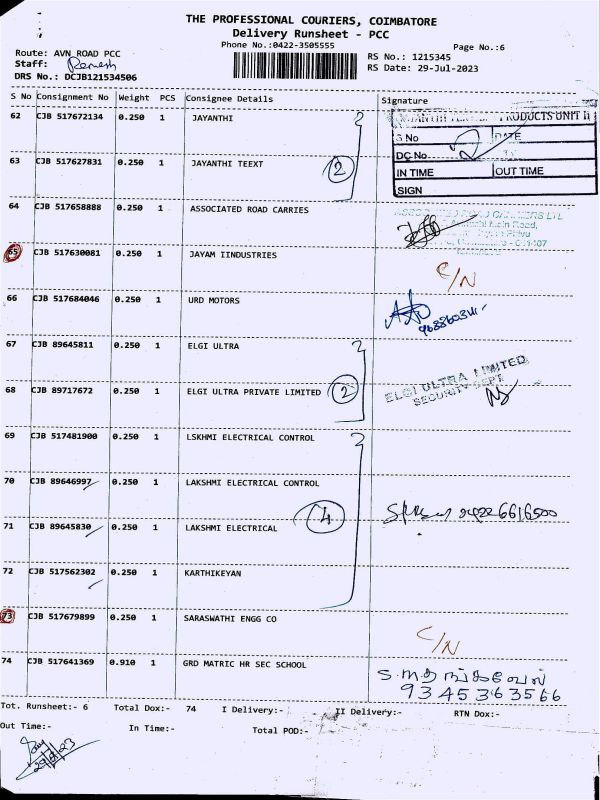 THE PROFESSIONAL COURIERS, COIMBATORE
Delivery Runsheet - PCC
Phone No.:0422-3505555
Page No.:6
Route: AVN_ROAD PCC
Staff: Ramesh
DRS No.: DCJB121534506
RS No.: 1215345
RS Date: 29-Jul-2023
S No Consignment No Weight PCS Consignee Details Signature
62 CJB 517672134 0.250 1 JAYANTHI
PRODUCTS UNIT II
S No DATE
DC No
IN TIME OUT TIME
SIGN
63 CJB 517627831 0.250 1 JAYANTHI TEEXT
2
64 CJB 517658888 0.250 1 ASSOCIATED ROAD CARRIES
65 CJB 517630081 0.250 1 JAYAM IINDUSTRIES
C/N
66 CJB 517684046 0.250 1 URD MOTORS
67 CJB 89645811 0.250 1 ELGI ULTRA
68 CJB 89717672 0.250 1 ELGI ULTRA PRIVATE LIMITED 2
ELGI ULTRA LIMITED
SECURITY DEPT
69 CJB 517481900 0.250 1 LSKHMI ELECTRICAL CONTROL
70 CJB 89646997 0.250 1 LAKSHMI ELECTRICAL CONTROL
4
71 CJB 89645830 0.250 1 LAKSHMI ELECTRICAL
72 CJB 517562302 0.250 1 KARTHIKEYAN
73 CJB 517679899 0.250 1 SARASWATHI ENGG CO
C/N
74 CJB 517641369 0.910 1 GRD MATRIC HR SEC SCHOOL
9345363566
Tot. Runsheet:- 6 Total Dox:- 74 I Delivery:- II Delivery:- RTN Dox:-
Out Time:- In Time:- Total POD:-